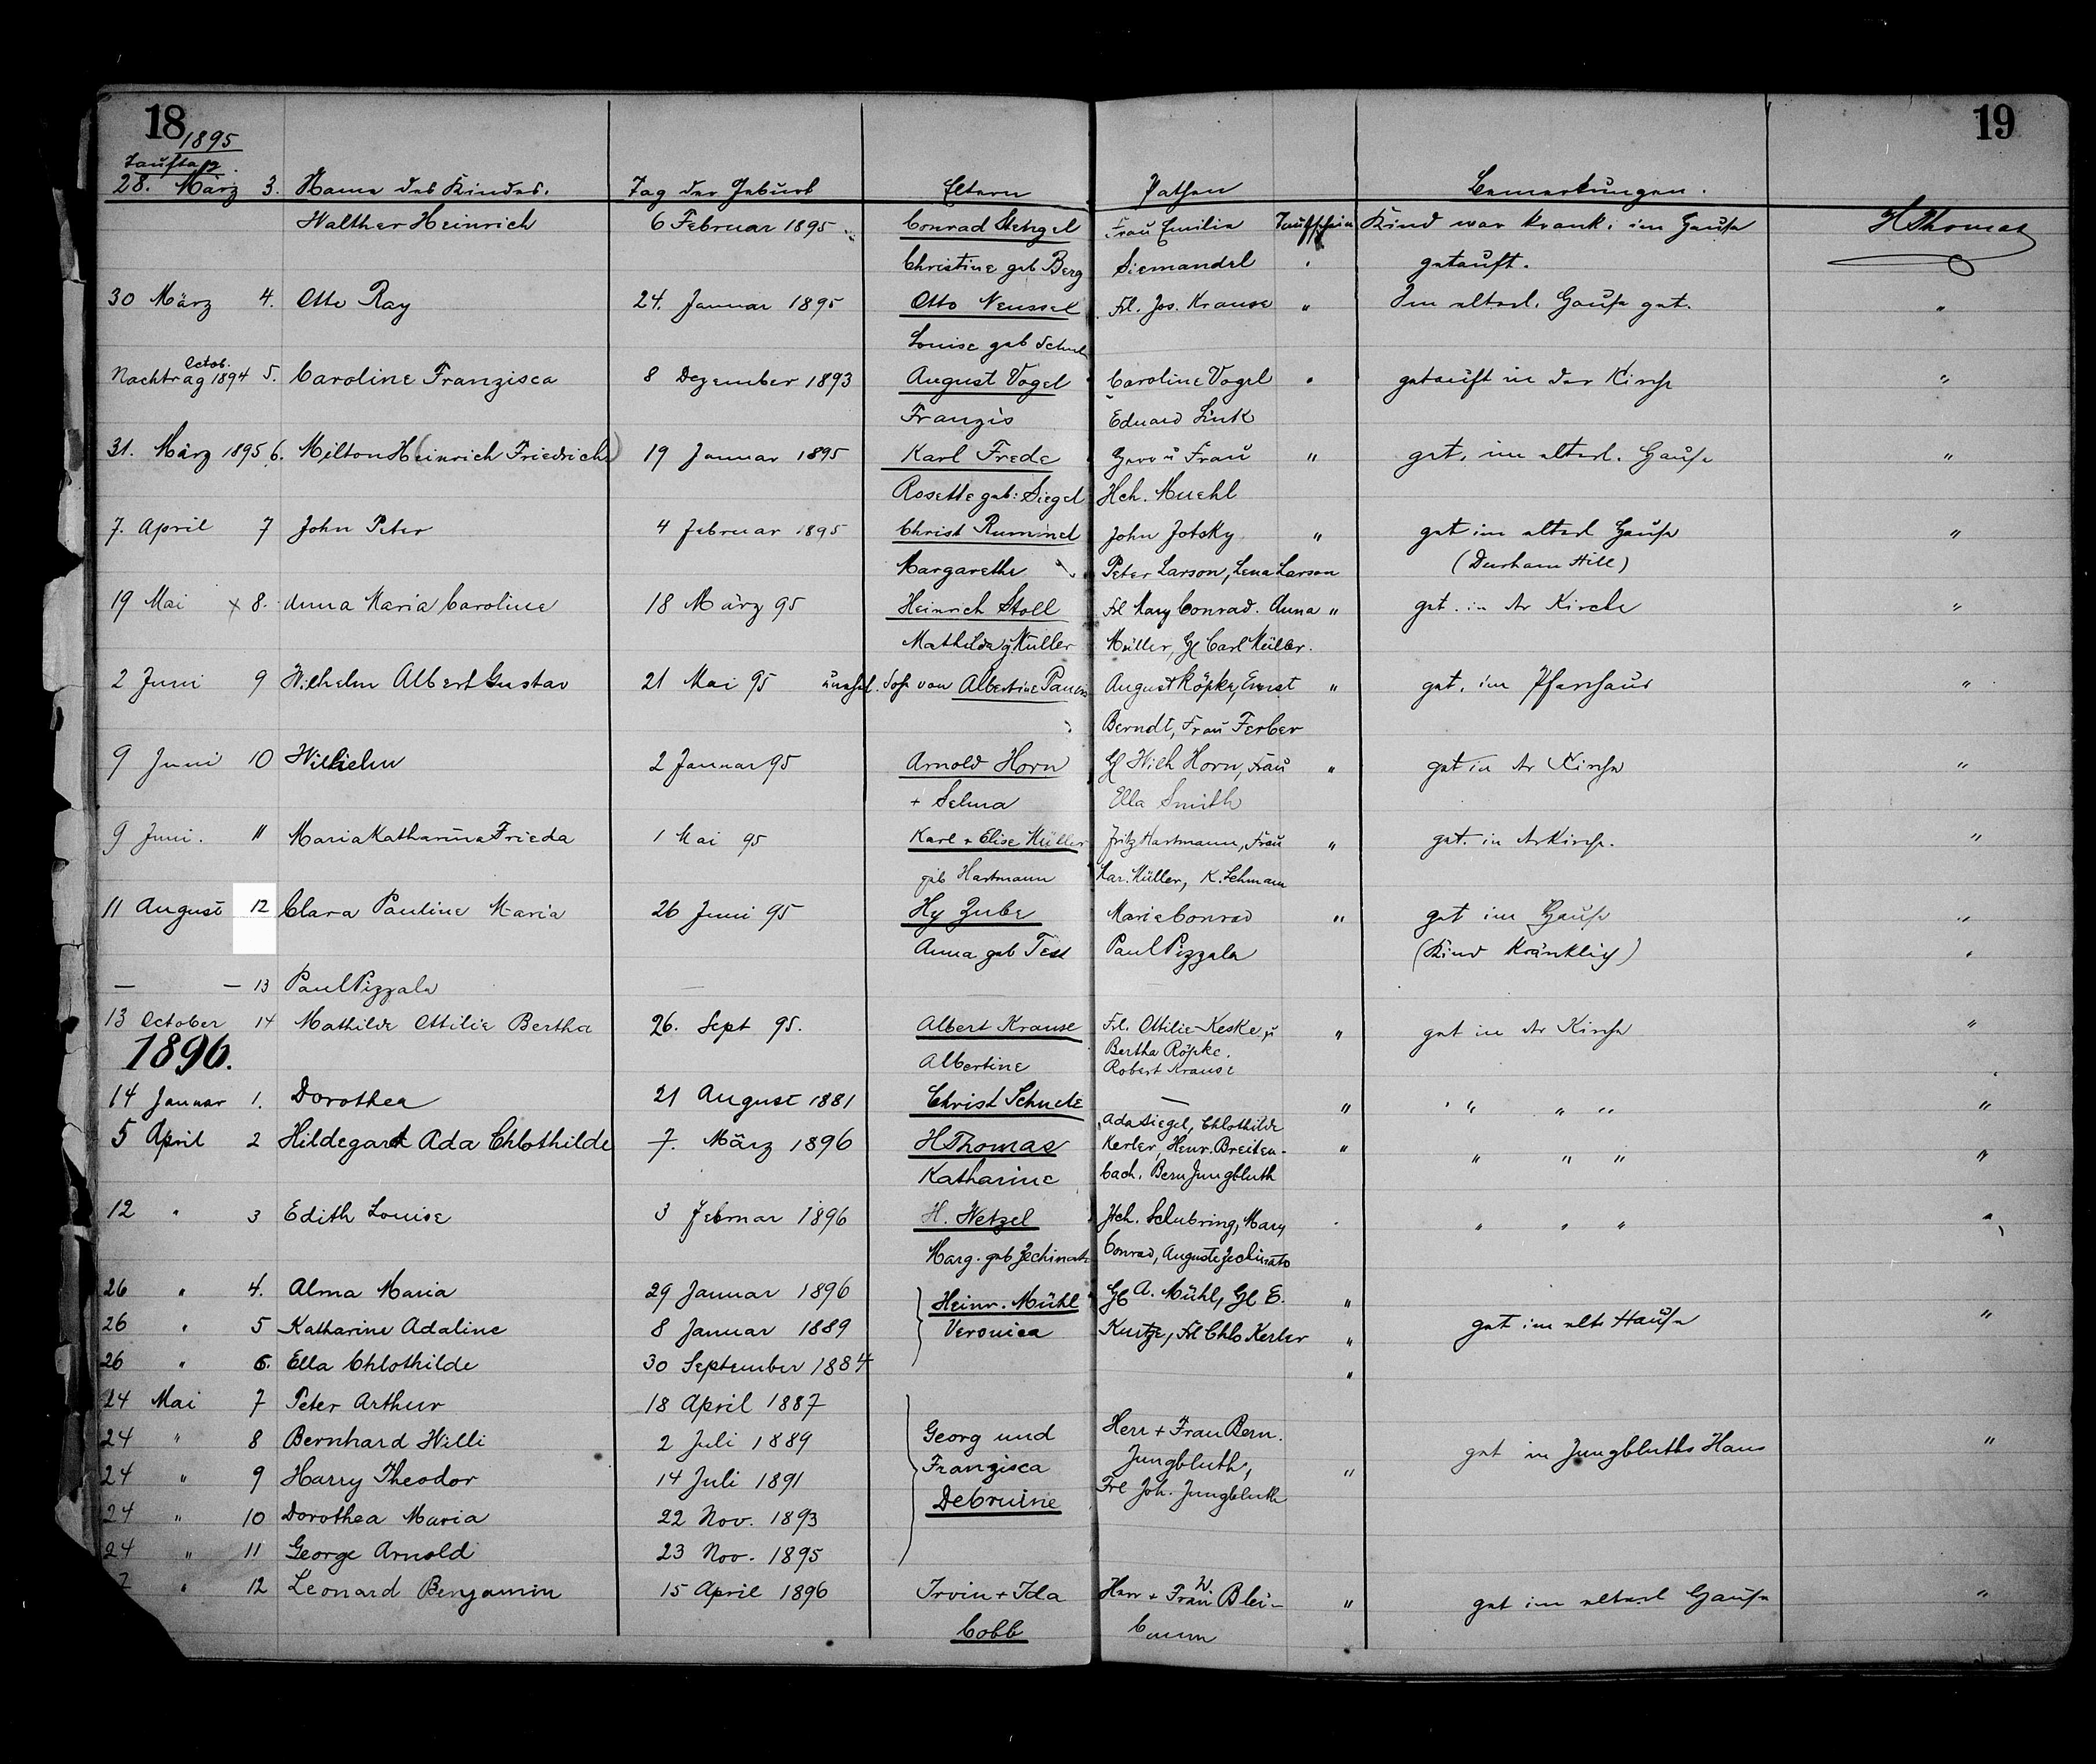 18 1895 19
Tauftag
28. März 3. Name des Kindes. Tag der Geburt Eltern Pathen Bemerkungen.
Walther Heinrich 6 Februar 1895 Conrad Stengel Frau Emilie Taufschein Kind war krank; im Hause HThomas
Christine geb Berg Siemandel getauft.
30 März 4. Otto Ray 24. Januar 1895 Otto Neussel Frl. Jos. Krause " Im elterl. Hause get. "
Louise geb
Octob.
Nachtrag 1894 5. Caroline Franzisca 8 Dezember 1893 August Vogel Caroline Vogel " getauft in der Kirche "
Franzis Eduard Link
31. März 1895 6. Milton H(einrich Friedrich) 19 Januar 1895 Karl Frede Herr u Frau " get. im elterl. Hause "
Rosette geb: Siegel Hch. Muehl
7. April 7 John Peter 4 Februar 1895 Christ Rummel John Jotsky " get im elterl Hause "
Margarethe Peter Larson, Lena Larson (Durham Hill)
19 Mai x 8. Anna Maria Caroline 18 März 95 Heinrich Stoll Frl Mary Conrad. Anna " get. in der Kirche "
Mathilda g Müller Müller, H Carl Müller.
2 Juni 9 Wilhelm Albert Gustav 21 Mai 95 unehel. Sohn von Albertine August Röpke, Ernst " get. im Pfarrhaus "
Berndt, Frau Ferber
9 Juni 10 Wilhelm 2 Januar 95 Arnold Horn H Wilh Horn, Frau " get in der Kirche "
+ Selma Ella Smith
9 Juni. 11 Maria Katharina Frieda 1 Mai 95 Karl + Elise Müller Fritz Hartmann, Frau " get. in der Kirche. "
geb Hartmann Mar. Müller, K. Lehmann
11 August 12 Clara Pauline Maria 26 Juni 95 Hy Zube Marie Conrad " get im Hause "
Anna geb Tess Paul Pizzala (Kind kränklich) "
— — 13 Paul Pizzala —
13 October 14 Mathilde Ottilie Bertha 26. Sept 95. Albert Krause Frl. Ottilie Keske, u " get in der Kirche "
1896. Albertine Bertha Röpke.
Robert Krause
14 Januar 1. Dorothea 21 August 1881 Christ Schuete — " " " " "
Ada Siegel, Chlothilde
5 April 2 Hildegard Ada Chlothilde 7. März 1896 HThomas Kerler, Henr. Breiten- " " " " "
Katharine bach. Bern Jungbluth
12 " 3 Edith Louise 3 Februar 1896 H. Wetzel Hch. Schubring, Mary " " " " "
Marg. geb Conrad, Auguste
26 " 4. Alma Maria 29 Januar 1896 Heinr. Mühl H A. Mühl, H E. "
26 " 5 Katharine Adaline 8 Januar 1889 Veronica Kurtze, Frl Chlo Kerler " get im elt Hause "
26 " 6. Ella Chlothilde 30 September 1884 "
24 Mai 7 Peter Arthur 18 April 1887
24 " 8 Bernhard Willi 2 Juli 1889 Georg und Herr + Frau Bern. get in Jungbluths Haus "
24 " 9 Harry Theodor 14 Juli 1891 Franzisca Jungbluth, "
24 " 10 Dorothea Maria 22 Nov. 1893 Debruine Frl Joh. Jungbluth
24 " 11 George Arnold 23 Nov. 1895
7 " 12 Leonard Benjamin 15 April 1896 Irvin + Ida Herr + Frau W. Blei- " get im elterl Hause "
Cobb baum